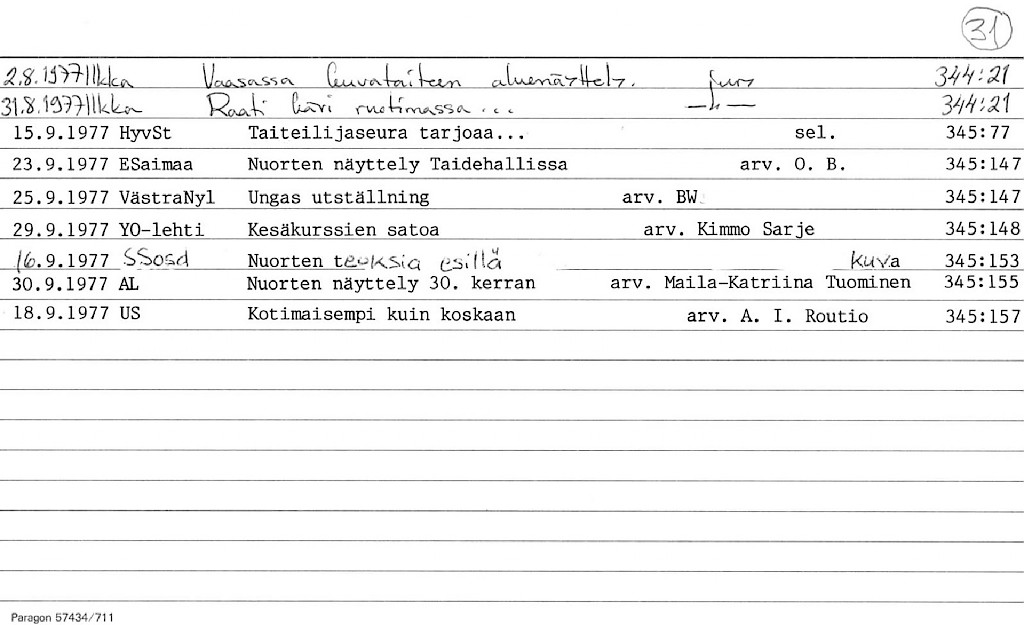 31
2.8.1977 Ilkka Vaasassa kuvataiteen aluenäyttely. 344:21
31.8.1977 Ilkka Raati kävi ruotimassa... —"— 344:21
15.9.1977 HyvSt Taiteilijaseura tarjoaa... sel. 345:77
23.9.1977 ESaimaa Nuorten näyttely Taidehallissa arv. O. B. 345:147
25.9.1977 VästraNyl Ungas utställning arv. BW 345:147
29.9.1977 YO-lehti Kesäkurssien satoa arv. Kimmo Sarje 345:148
16.9.1977 SSosd Nuorten teoksia esillä kuva 345:153
30.9.1977 AL Nuorten näyttely 30. kerran arv. Maila-Katriina Tuominen 345:155
18.9.1977 US Kotimaisempi kuin koskaan arv. A. I. Routio 345:157
Paragon 57434/711